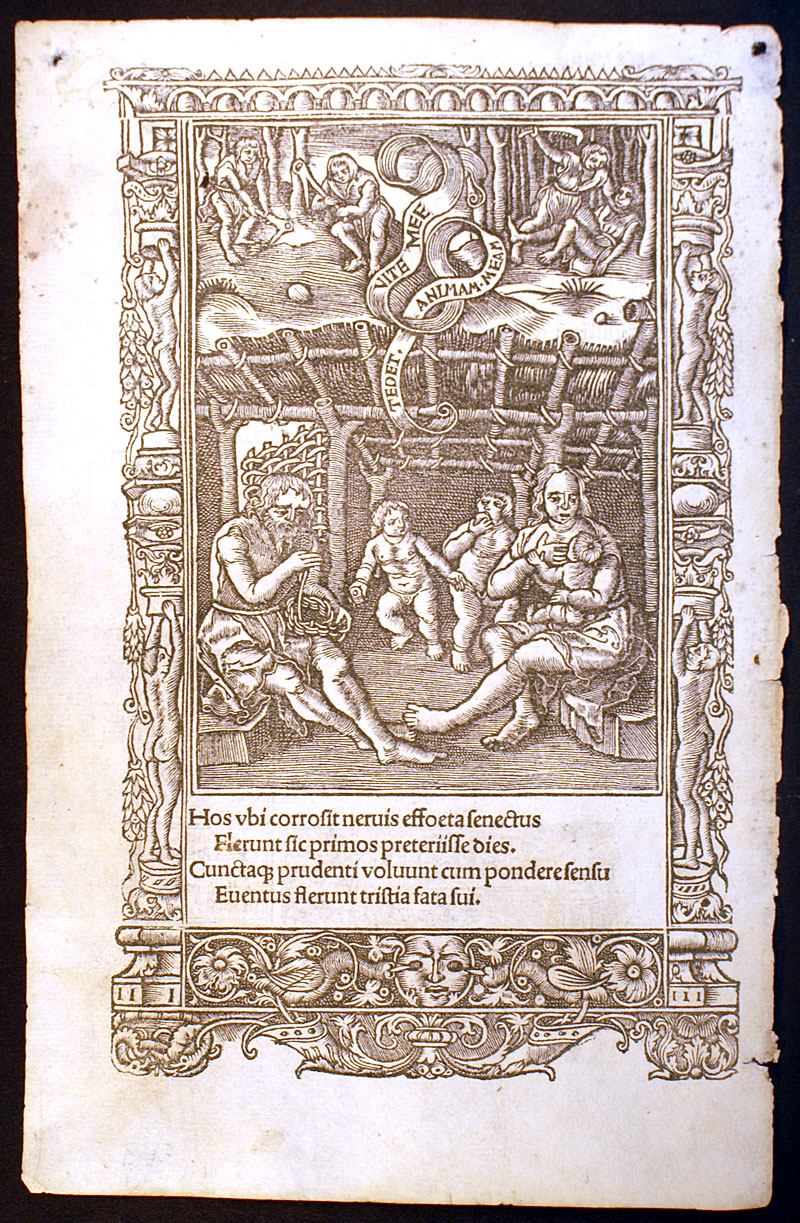 TEDET.
ANIMAM·MEAM
VITE MEE
Hos vbi corrosit neruis effoeta senectus
Flerunt sic primos preteriisse dies.
Cunctaqꝫ prudenti voluunt cum pondere sensu
Euentus flerunt tristia fata sui.
II I
III